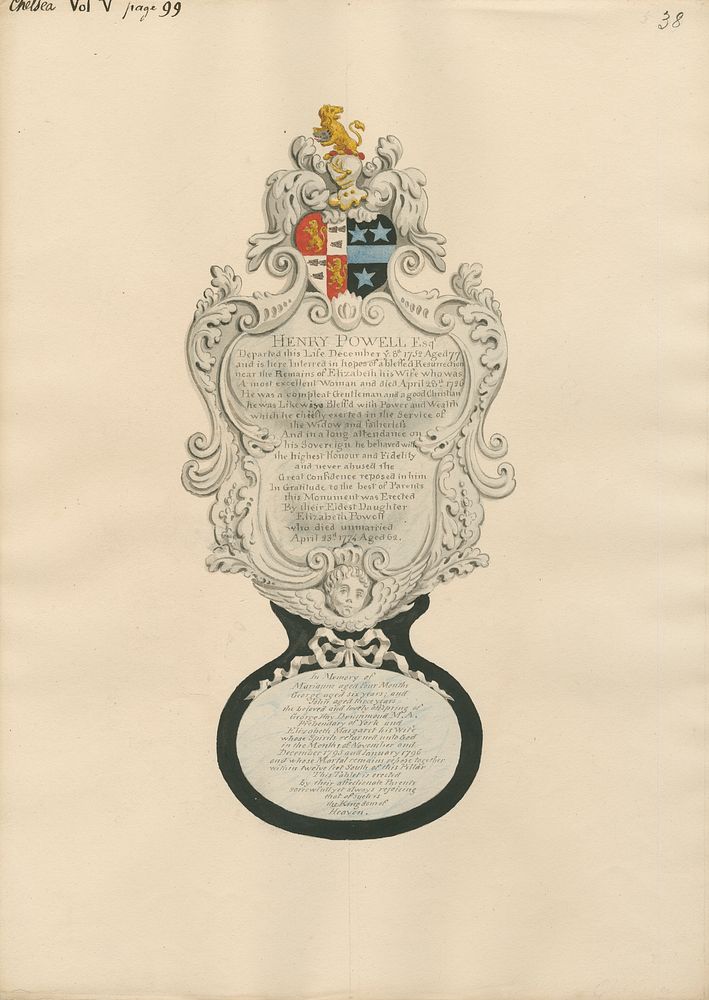 Chelsea Vol V page 99
38
HENRY POWELL Esqr
Departed this Life December ye 8th 1752 Aged 77
and is here Interred in hopes of a blessed Resurrection
near the Remains of Elizabeth his Wife who was
A most excellent Woman and died April 28th 1726
He was a compleat Gentleman and a good Christian
he was Likewise Bless'd with Power and Wealth
which he chiefly exerted in the Service of
the Widow and fatherless
And in a long attendance on
his Sovereign he behaved with
the highest Honour and Fidelity
and never abused the
Great Confidence reposed in him
In Gratitude to the best of Parents
this Monument was Erected
By their Eldest Daughter
Elizabeth Powell
who died unmarried
April 23d 1774 Aged 62.
In Memory of
Marianne aged four Months
George aged six years; and
John aged three years
the beloved and lovely offspring of
George Hay Drummond M.A.
Prebendary of York and
Elizabeth Margaret his Wife
whose Spirits returned unto God
in the Months of November and
December 1795 and January 1796
and whose Mortal remains repose together
within twelve feet South of this Pillar
This Tablet is erected
by their affectionate Parents
sorrowful yet always rejoicing
that of such is
the Kingdom of
Heaven.